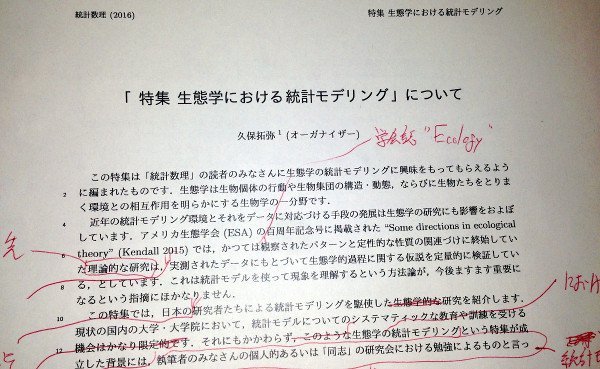 統計数理 (2016) 特集 生態学における統計モデリング
「 特集 生態学における統計モデリング」について
久保拓弥 1 (オーガナイザー)
学会誌 "Ecology"
この特集は「統計数理」の読者のみなさんに生態学の統計モデリングに興味をもってもらえるよう
2 に編まれたものです．生態学は生物個体の行動や生物集団の構造・動態，ならびに生物たちをとりま
く環境との相互作用を明らかにする生物学の一分野です．
4 近年の統計モデリング環境とそれをデータに対応づける手段の発展は生態学の研究にも影響をおよぼ
しています．アメリカ生態学会 (ESA) の百周年記念号に掲載された “Some directions in ecological
6 theory” (Kendall 2015) では，かつては観察されたパターンと定性的な性質の関連づけに終始してい
た理論的な研究は，実測されたデータにもとづいて生態学的過程に関する仮説を定量的に検証してい
8 る，としています．これは統計モデルを使って現象を理解するという方法論が，今後ますます重要に
なるという指摘にほかなりません．
10 この特集では，日本の研究者たちによる統計モデリングを駆使した生態学的な研究を紹介します．
現状の国内の大学・大学院において，統計モデルについてのシステマティックな教育や訓練を受ける
12 機会はかなり限定的です．それにもかかわらず，このような生態学の統計モデリングという特集が成
立した背景には，執筆者のみなさんの個人的あるいは「同志」の研究会における勉強によるものと言っ